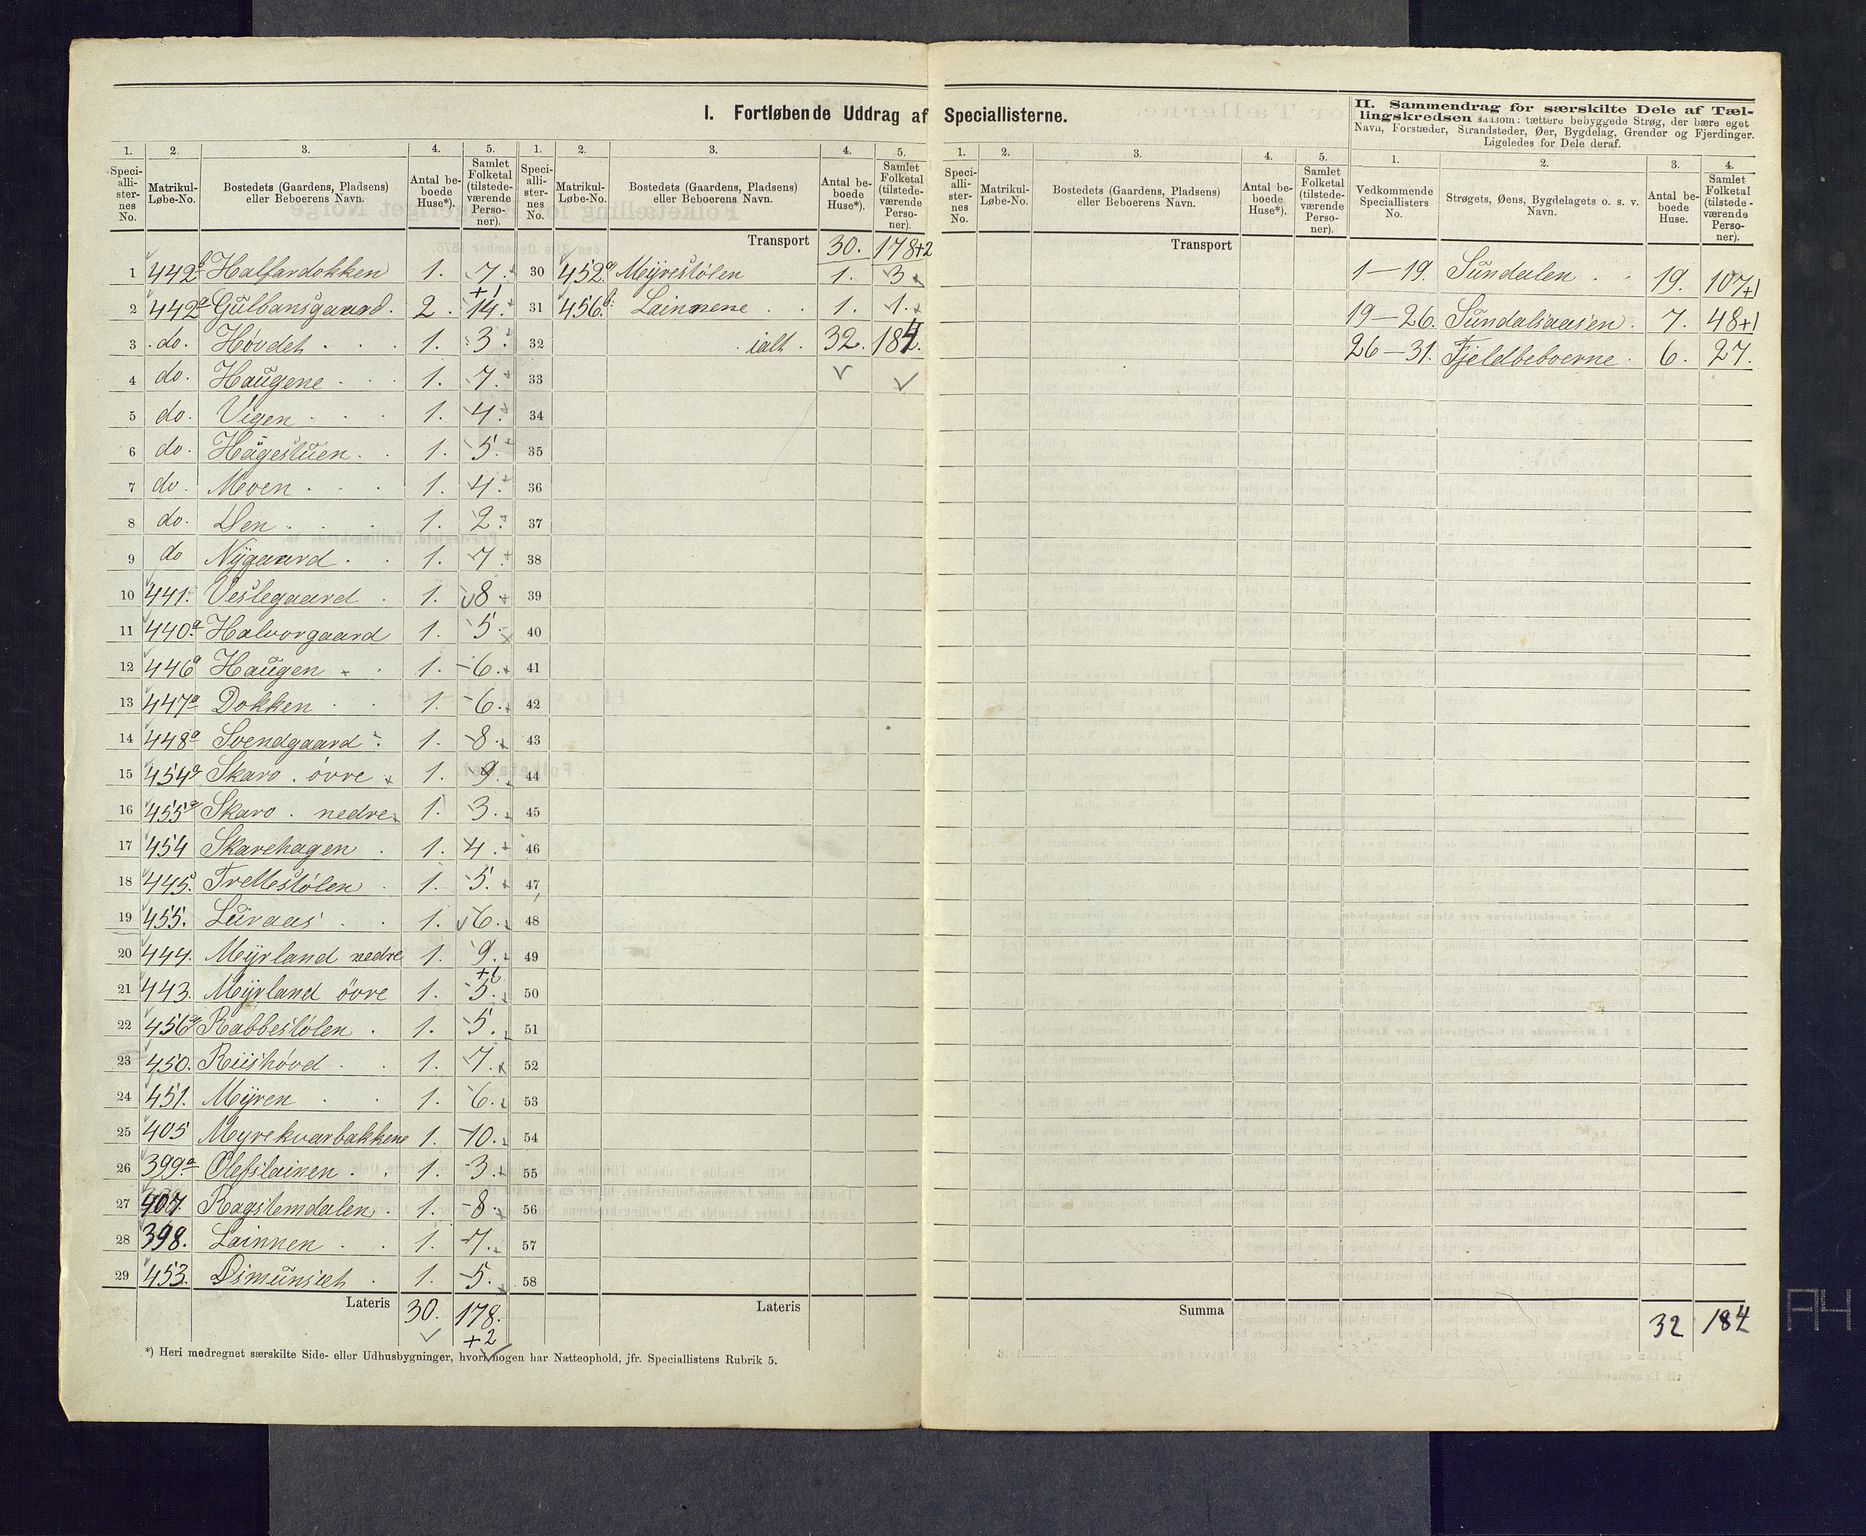 I. Fortløbende Uddrag af Speciallisterne.
1. Speciallisternes No. 2. Matrikul-Løbe-No. 3. Bostedets (Gaardens, Pladsens) eller Beboerens Navn. 4. Antal beboede Huse*). 5. Samlet Folketal (tilstedeværende Personer).
1 442b Halfardokken 1. 7.
2 442a Gulbansgaard. 2. 14. +1
3 do. Høvdet 1. 3.
4 do. Haugene 1. 7.
5 do. Vigen 1. 4.
6 do. Hagestuen 1. 5.
7 do. Moen 1. 4.
8 do. Øen 1. 2.
9 do Nÿgaard 1. 7.
10 441. Veslegaard 1. 8
11 440.a Halvorgaard 1. 5.
12 446a Haugen 1. 6.
13 447a Dokken 1. 6.
14 448a Svendgaard 1. 8.
15 454a Skaro. övre 1. 9.
16 455a Skaro. nedre 1. 3.
17 454 Skarehagen 1. 4.
18 445. Trettestölen 1. 5.
19 455. Luraas 1. 6.
20 444. Mÿrland nedre 1. 9.
21 443. Mÿrland övre 1. 5. +1
22 456a Rabbestölen 1. 5.
23 450. Riishövd 1. 7.
24 451. Mÿren 1. 6.
25 405 Myrekvarbakkene 1. 10.
26 399a Olefslainen 1. 3.
27 407. Ragstemdalen 1. 8.
28 398. Lainnen 1. 7.
29 453. Osmunset 1. 5.
Lateris 30. 178. +2
*) Heri medregnet særskilte Side- eller Udhusbygninger, hvori nogen har Natteophold, jfr. Speciallistens Rubrik 5.
1. Speciallisternes No. 2. Matrikul-Løbe-No. 3. Bostedets (Gaardens, Pladsens) eller Beboerens Navn. 4. Antal beboede Huse*). 5. Samlet Folketal (tilstedeværende Personer).
Transport 30. 178+2
30 452a Mÿrestölen 1. 3
31 456b Lainnene 1. 1.
32 ialt 32. 184.
33
34
35
36
37
38
39
40
41
42
43
44
45
46
47
48
49
50
51
52
53
54
55
56
57
58
Lateris
1. Speciallisternes No. 2. Matrikul-Løbe-No. 3. Bostedets (Gaardens, Pladsens) eller Beboerens Navn. 4. Antal beboede Huse*). 5. Samlet Folketal (tilstedeværende Personer).
Transport
Summa
II. Sammendrag for særskilte Dele af Tællingskredsen saasom: tættere bebyggede Strøg, der bære eget
Navn, Forstæder, Strandsteder, Øer, Bygdelag, Grender og Fjerdinger.
Ligeledes for Dele deraf.
1. Vedkommende Speciallisters No. 2. Strøgets, Øens, Bygdelagets o. s. v. Navn. 3. Antal beboede Huse. 4. Samlet Folketal (tilstedeværende Personer).
1-19. Sundalen 19. 107+1
19-26. Sundalsaasen 7. 48+1
26-31. Fjeldbeboerne 6. 27.
32 184
A4